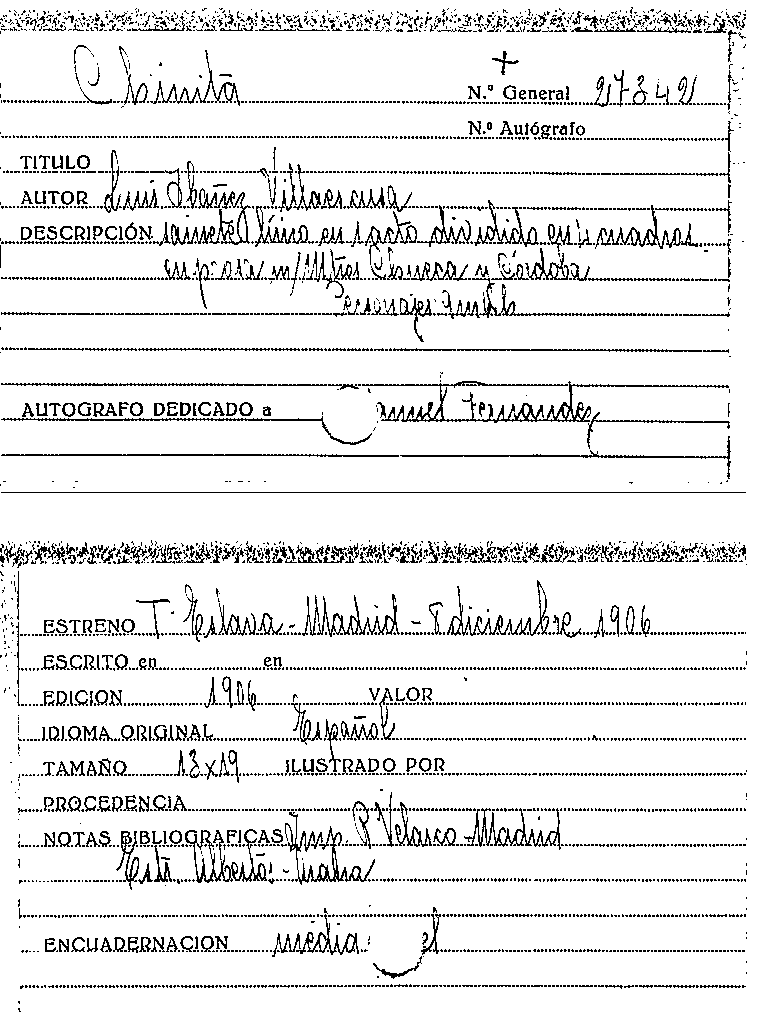 Chinita
N.º General 27342
N.º Autógrafo
TITULO
AUTOR Luis Ibañez Villaescusa
DESCRIPCIÓN sainete lírico en 1 acto dividido en 4 cuadros
en prosa m/ Mtros Chueca y Córdoba
Personajes
AUTOGRAFO DEDICADO a anuel Fernández
ESTRENO T. Eslava - Madrid - 8 diciembre 1906
ESCRITO en en
EDICION 1906 VALOR
IDIOMA ORIGINAL Español
TAMAÑO 13x19 ILUSTRADO POR
PROCEDENCIA
NOTAS BIBLIOGRAFICAS Imp. R Velasco - Madrid
Estr. Alberto
ENCUADERNACION media el